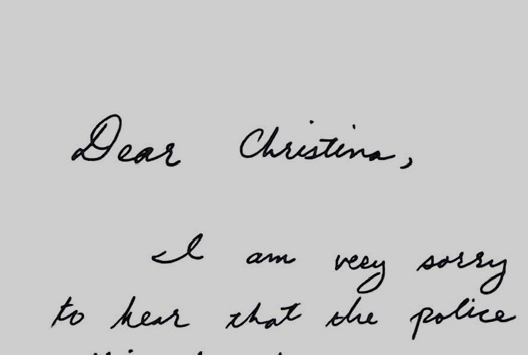 Dear Christina,
I am very sorry
to hear that the police